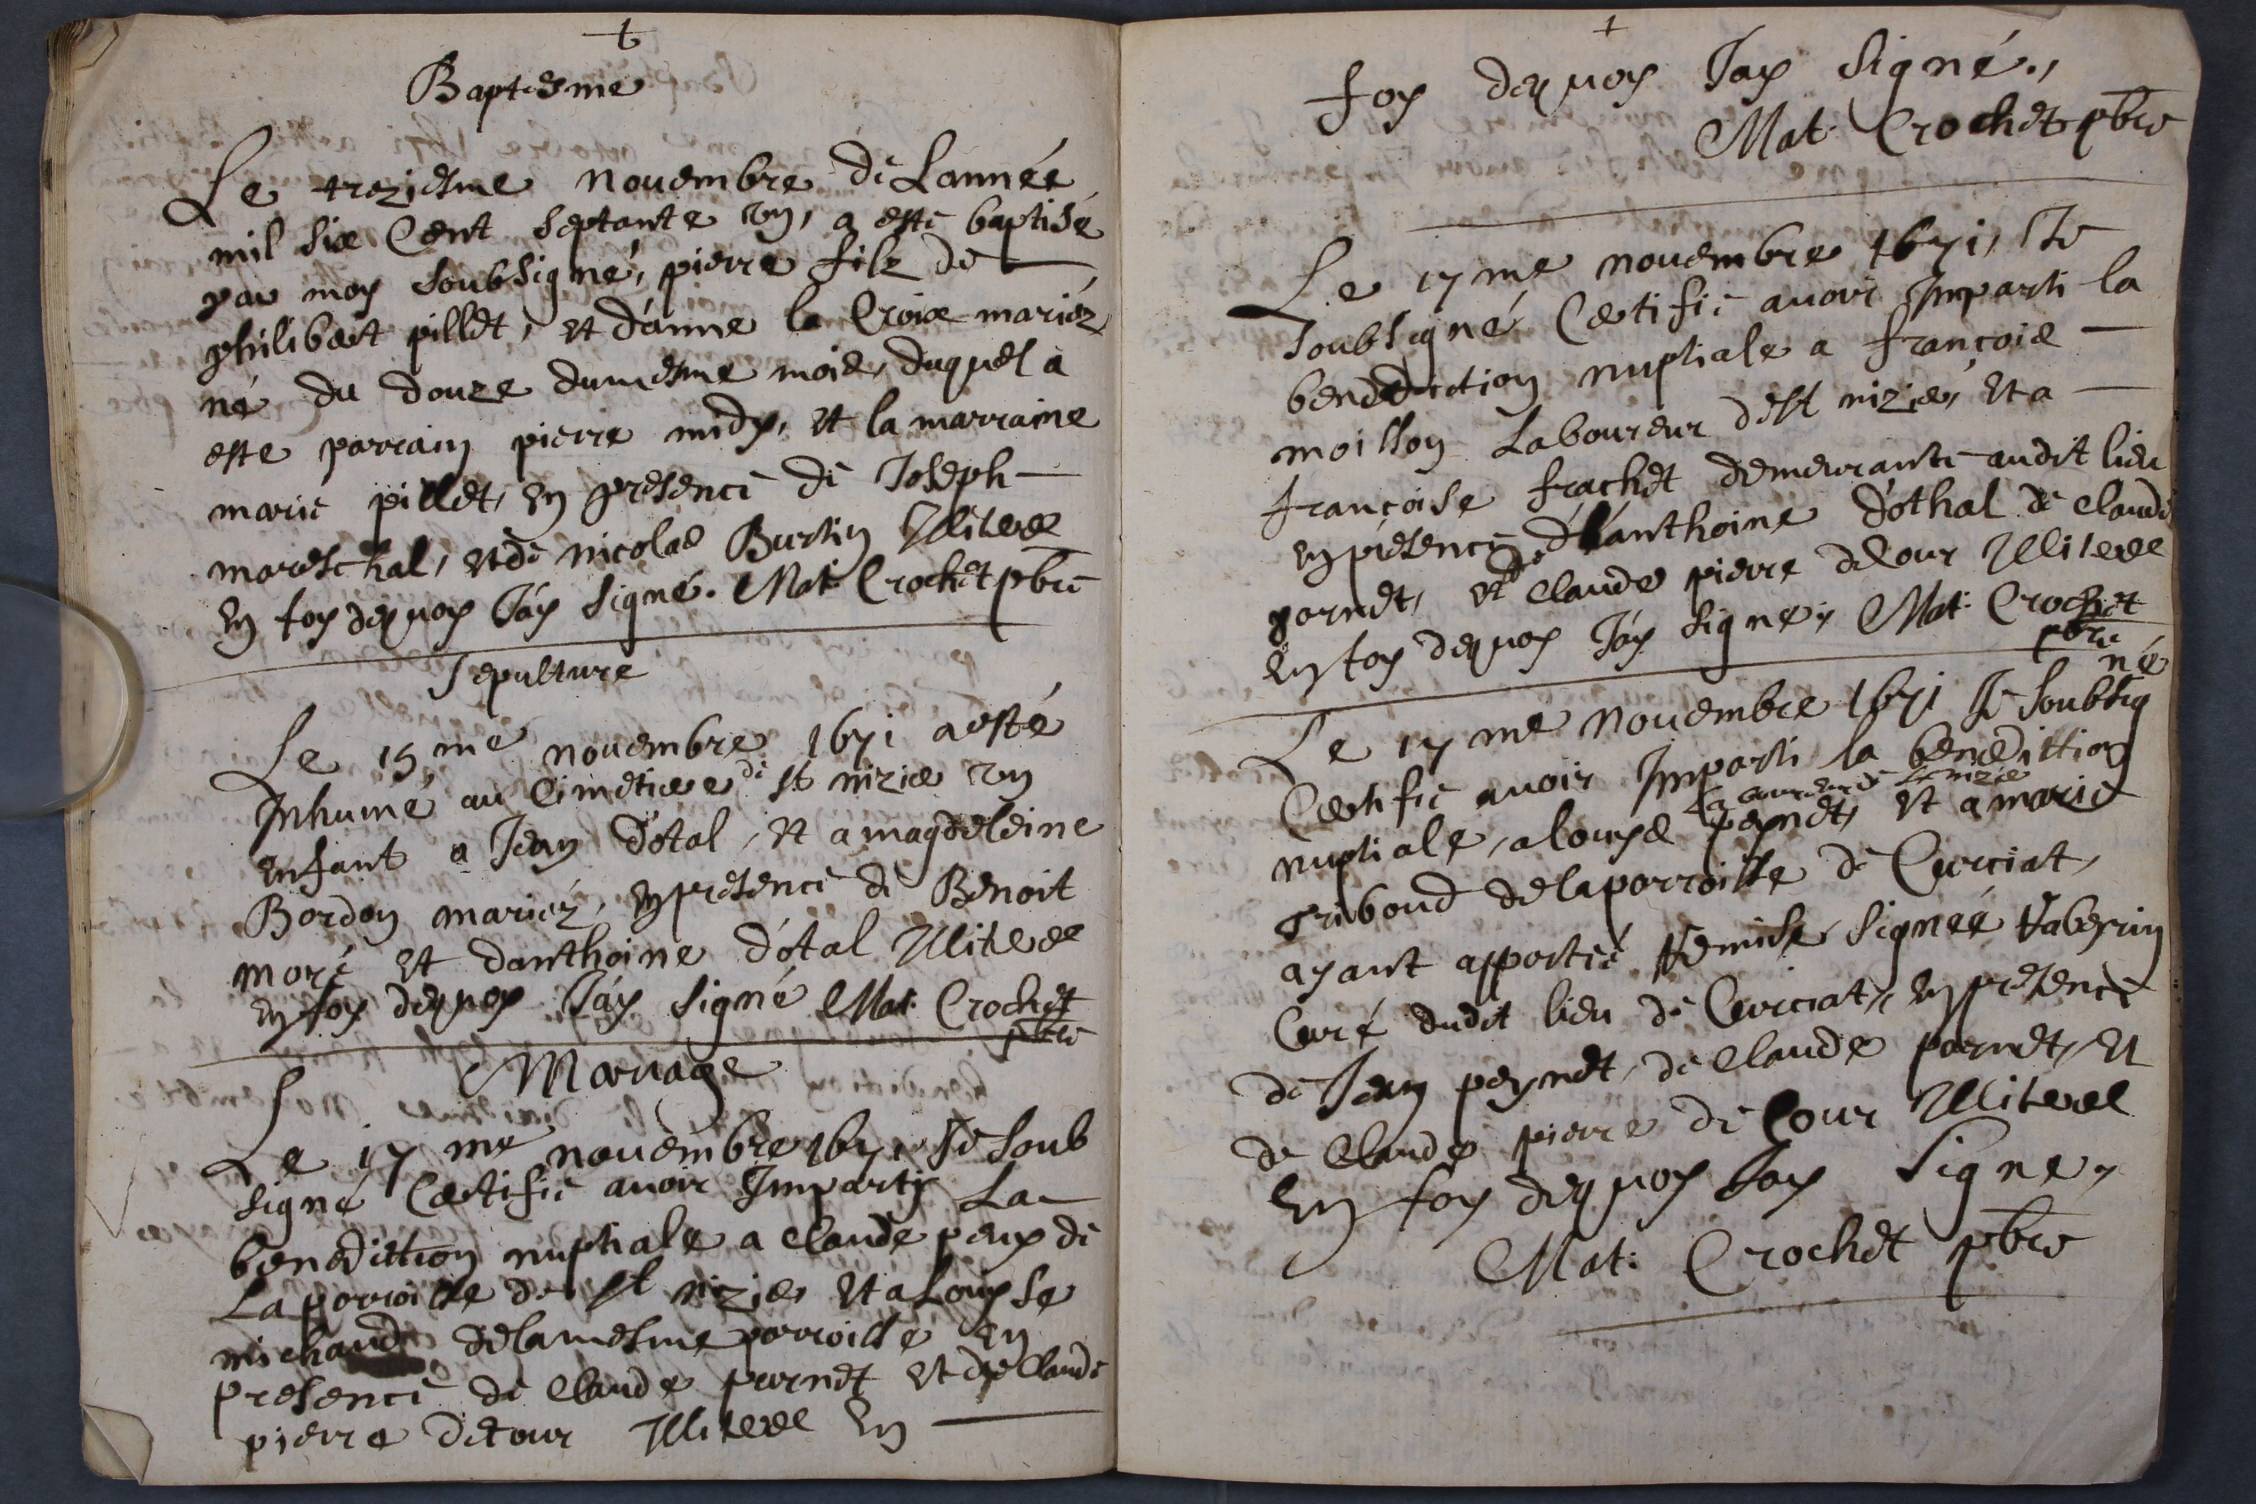 Baptesme
Le treziesme nouembre de Lannée
mil six Cent septante vn, a esté baptisé
par moy soubsigné, pierre filz de
philibert pillet, et d'anne la Croix mariéz
né du douze dumesme mois, duquel a
este parrain pierre midy, et la marraine
marie pillet, en presence de Joseph
mareschal, et de nicolas Burtin Illiteres
En foy dequoy J'ay signé. Mat: Crochet pbre
Sepulture
Le 15me nouembre 1671 a esté
Inhumé au Cimetiere de st nizie vn
enfant a Jean d'otal, et a magdeleine
Bordon mariéz, en presence de Benoit
moré et danthoine d'otal Illiteres
en foy dequoy J'ay signé Mat: Crochet
pbre
Mariage
Le 17me nouembre 1671, Je soub
signé Certifie auoir Imparty La
benediction nuptiale a claude peux de
La parroisse de st nizie, et a Louyse
michaud delamesme parroisse en
presence de claude parnet et de claude
pierre detour Illiteres En
foy dequoy Jay signé.,
Mat: Crochet pbre
Le 17me nouembre 1671, Je
soubsigné Certifie auoir Imparti la
benediction nuptiale a françois
moisson Laboureur dest nizie, et a
françoise frachet demeurante audit lieu
en présence de d'anthoine d'othal de claude
parnet, et de claude pierre delour Illiteres
en foy dequoy J'ay signé, Mat: Crochet
pbre
Le 17me nouembre 1671 Je soubsig
né
Certifie auoir Imparti la benediction
Laboureur de st nizie
nuptiale, a louys peynet, et a marie
griboud delaparroisse de Curciat,
ayant apportée Remise signée
Curé dudit lieu de Curciat, en presence
de Jean peynet, de claude parnet, et
de claude pierre de lour Illiteres
En foy dequoy Jay signe,
Mat: Crochet pbre